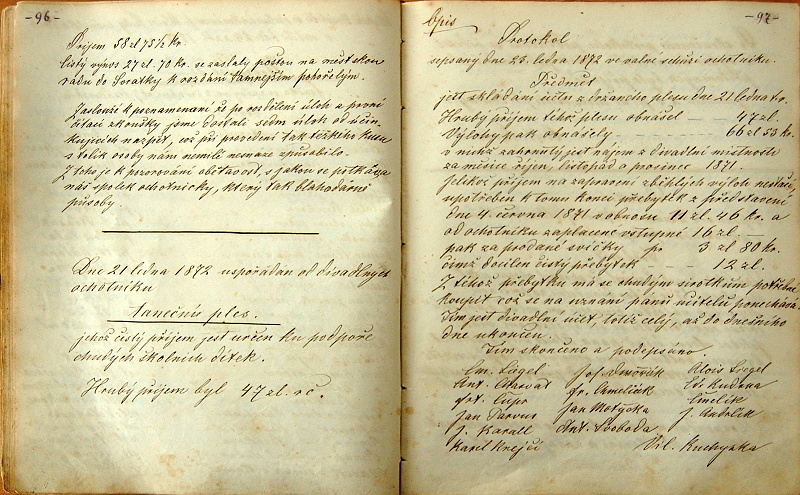 -96-
Příjem 58 zl 75 1/2 kr.
čistý výnos 27 zl. 70 kr. se zaslaly poštou na městskou
radu do k rozdání tamnejším pohořelým.
Zaslouží k poznamenání že po rozdělení úloh a první
čítací zkoušky jsme dostali sedm úloh od účin-
kujících nazpět, což při provedení tak těžkého kusu
s tolik osoby nám nemilé nesnáze způsobilo.
Z toho je k pozorování obětavost, s jakou se potkává
náš spolek ochotnický, který tak blahodárně
působy.
Dne 21 ledna 1872 uspořádán od divadlnych
ochotníku
taneční ples.
jehož čistý příjem jest určen ku podpoře
chudých školních dítek.
Hrubý příjem byl 47 zl. r.č.
-97-
Opis
Protokol
sepsaný dne 23. ledna 1872 ve valné schůzi ochotníku.
Předmět
jest skládání účtu z držaného plesu dne 21 ledna t.r.
Hrubý příjem téhož plesu obnášel — 47 zl.
Výlohy pak obnášely - - - - 66 zl 53 kr.
v nichž zahrnutý jest nájem z divadlní místnosti
za měsíce říjen, listopad a prosinec 1871.
Jelikož příjem na zapravení zběhlých výloh nestačí,
upotřeben k tomu konci přebytek z představení
dne 4. června 1871 v obnosu 11 zl. 46 kr. a
od ochotníku zaplacené vstupné 16 zl. —
pak za prodané svíčky pr 3 zl 80 kr.
čímž docílen čistý přebytek - - 12 zl.
Z téhož přebytku má se chudým sirotkům potřebné
koupit což se na uznání panů učitelů ponechává.
Tím jest divadlní účet, totiž celý, až do dnešního
dne ukončen.
Tím skončeno a podepsáno.
Em. Siegel Jos. Dvořák Alois Siegel
Ant. Charvat Fr. Ed. Kučera
Fr. Čupr Jan Motyčka
Jan Parvus Ant. Svoboda
J. Karall Vil. Kuchynka
Karel Krejčí